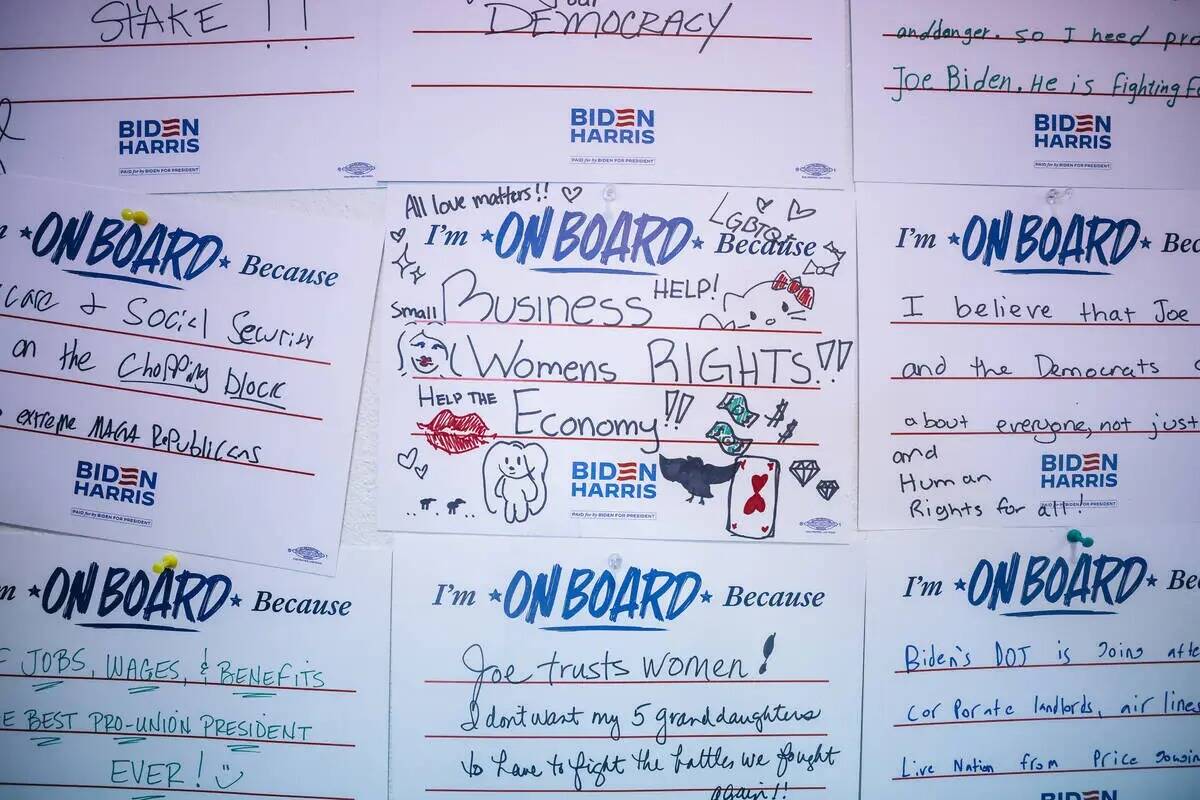 STAKE !!
BIDEN
HARRIS
PAID for by BIDEN FOR PRESIDENT
your
DEMOCRACY
BIDEN
HARRIS
PAID for by BIDEN FOR PRESIDENT
and danger. So I need pro
Joe Biden. He is fighting fo
BIDEN
HARRIS
PAID for by BIDEN FOR PRESIDENT
ON BOARD Because
care & Social Security
on the Chopping block
extreme MAGA Republicans
BIDEN
HARRIS
PAID for by BIDEN FOR PRESIDENT
All love matters!!
LGBTQ+
I'm ON BOARD Because
Small Business HELP!
Womens RIGHTS!!
HELP THE Economy!!
$ $
BIDEN
HARRIS
PAID for by BIDEN FOR PRESIDENT
I'm ON BOARD Bec
I believe that Joe
and the Democrats
about everyone, not just
and
Human
Rights for all!
BIDEN
HARRIS
m ON BOARD Because
F JOBS, WAGES, & BENEFITS
E BEST PRO-UNION PRESIDENT
EVER!
I'm ON BOARD Because
Joe trusts women!
I dont want my 5 granddaughters
to have to fight the battles we fought
again!!
I'm ON BOARD Be
Biden's DOJ is going afte
corporate landlords, airlines
Live Nation from Price gouging
BIDEN